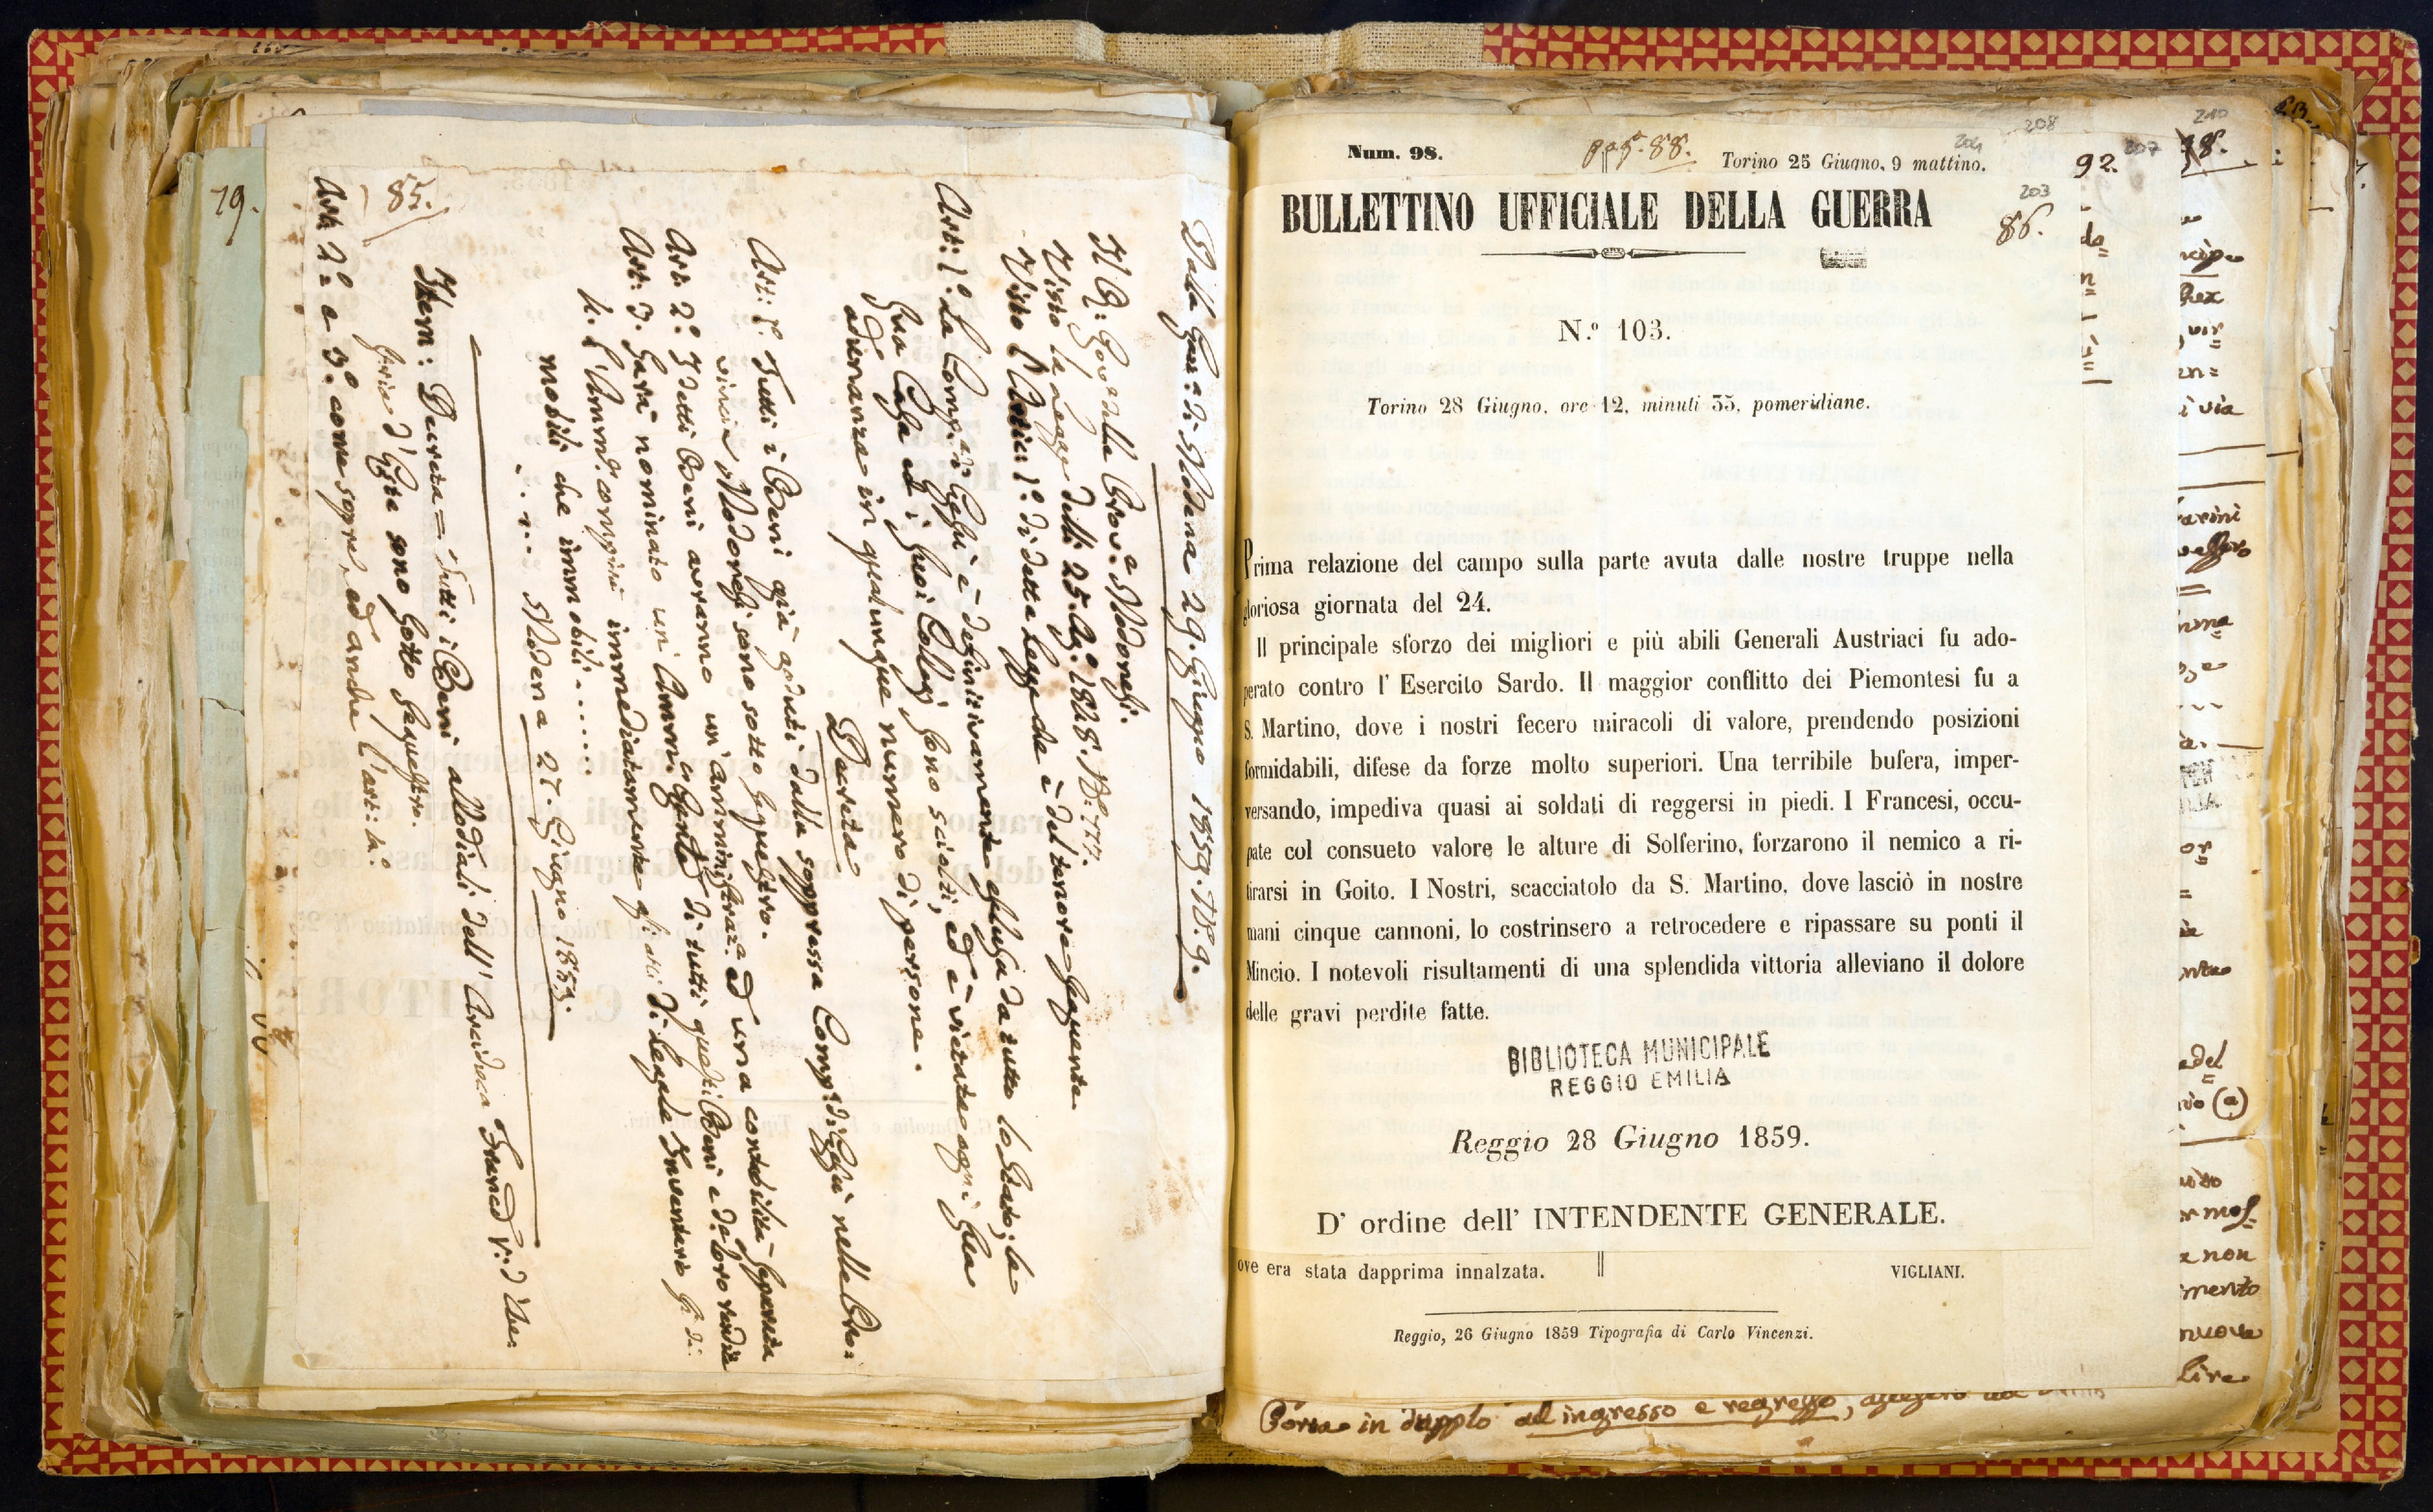 79.
85.
Dalla Gazz.a di Modena 29. Giugno 1859. N.º 9.
Il R: Gov.e delle Prov.e Modonesi.
Vista la Legge delli 25. Ag.º 1848. N.º 777.
Visto l'Artic. 1º di detta Legge che è del tenore seguente
Art: 1º La Comp.a di Gesù è definitivamente esclusa da tutto lo Stato; le
sue Case ed i suoi Collegj sono sciolti, ed è vietata ogni sua
adunanza in qualunque numero di persone.
Decreta
Art: 1º Tutti i Beni già goduti dalla soppressa Comp.a di Gesù nelle Pro:
vincie Modonesi sono sotto sequestro.
Art: 2º I detti Beni avranno un' amministraz.e ed una contabilità separata
Art: 3. Sarà nominato un' Amm: e di tutti questi Beni e de loro rendite
4. L'Amm.e compirà immediatamente gli atti di legale Inventario sì di
mobili che immobili......
..... Modena 27. Giugno 1859.
Item: Decreta = Tutti i Beni allodiali dell' Arciduca Franc. V. d'Au:
stria d'Este sono sotto sequestro.
Art: 2º e 3º come sopra, ed anche l'art: 4º
Num. 98.
pag.a 88.
Torino 25 Giugno, 9 mattino.
204
208
207
210
92.
98.
BULLETTINO UFFICIALE DELLA GUERRA
203
86.
N.º 103.
Torino 28 Giugno, ore 12, minuti 35, pomeridiane.
Prima relazione del campo sulla parte avuta dalle nostre truppe nella
gloriosa giornata del 24.
Il principale sforzo dei migliori e più abili Generali Austriaci fu ado-
perato contro l' Esercito Sardo. Il maggior conflitto dei Piemontesi fu a
S. Martino, dove i nostri fecero miracoli di valore, prendendo posizioni
formidabili, difese da forze molto superiori. Una terribile bufera, imper-
versando, impediva quasi ai soldati di reggersi in piedi. I Francesi, occu-
pate col consueto valore le alture di Solferino, forzarono il nemico a ri-
tirarsi in Goito. I Nostri, scacciatolo da S. Martino, dove lasciò in nostre
mani cinque cannoni, lo costrinsero a retrocedere e ripassare su ponti il
Mincio. I notevoli risultamenti di una splendida vittoria alleviano il dolore
delle gravi perdite fatte.
BIBLIOTECA MUNICIPALE
REGGIO EMILIA
Reggio 28 Giugno 1859.
D' ordine dell' INTENDENTE GENERALE.
ove era stata dapprima innalzata.
VIGLIANI.
Reggio, 26 Giugno 1859 Tipografia di Carlo Vincenzi.
Porta in dupplo all ingresso e regresso,